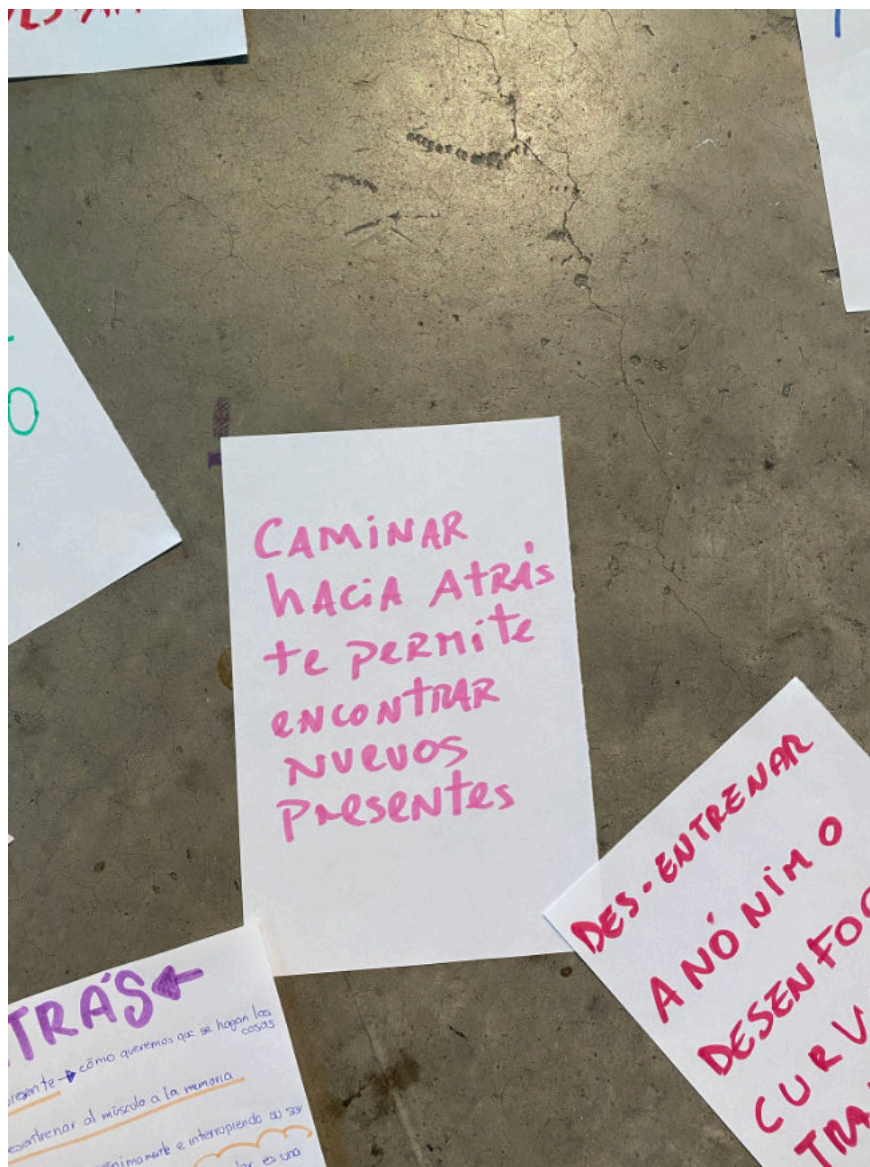 CAMINAR
hACiA AtRÁs
te peRMite
eNCONtRAR
NUevOS
pResentes
DES-ENTRENAR
ANÓNIMO
TRÁS←
cómo queremos que se hagan las
cosas
al músculo a la memoria
e interrumpiendo su ser
es una